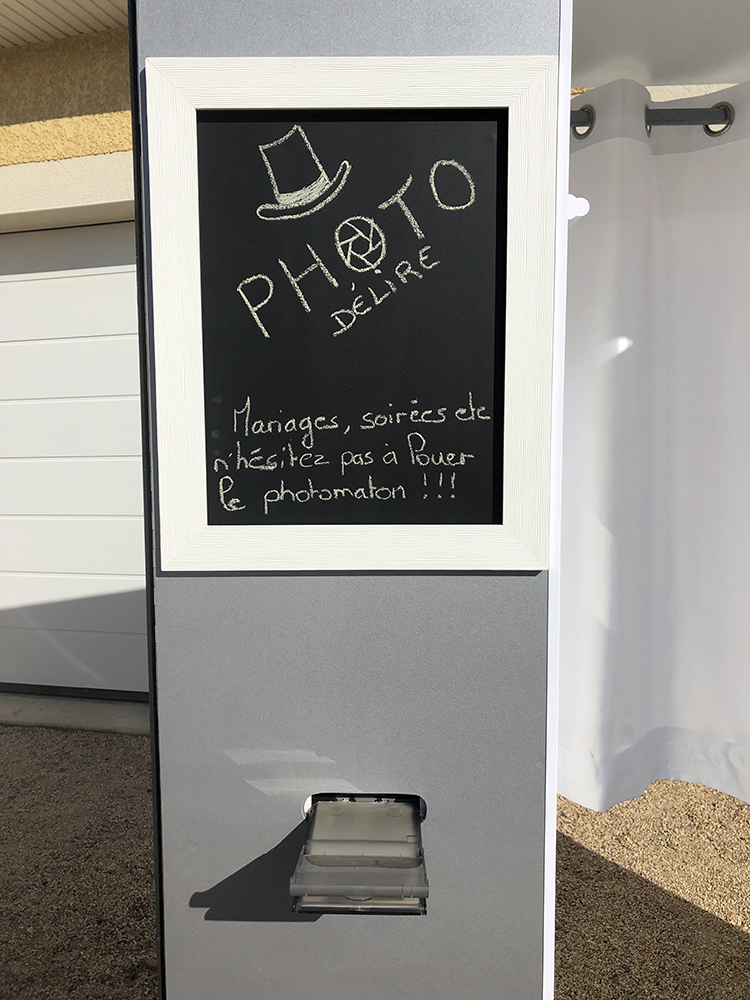 PHOTO
DÉLIRE
Mariages, soirées etc
n'hésitez pas à louer
le photomaton !!!